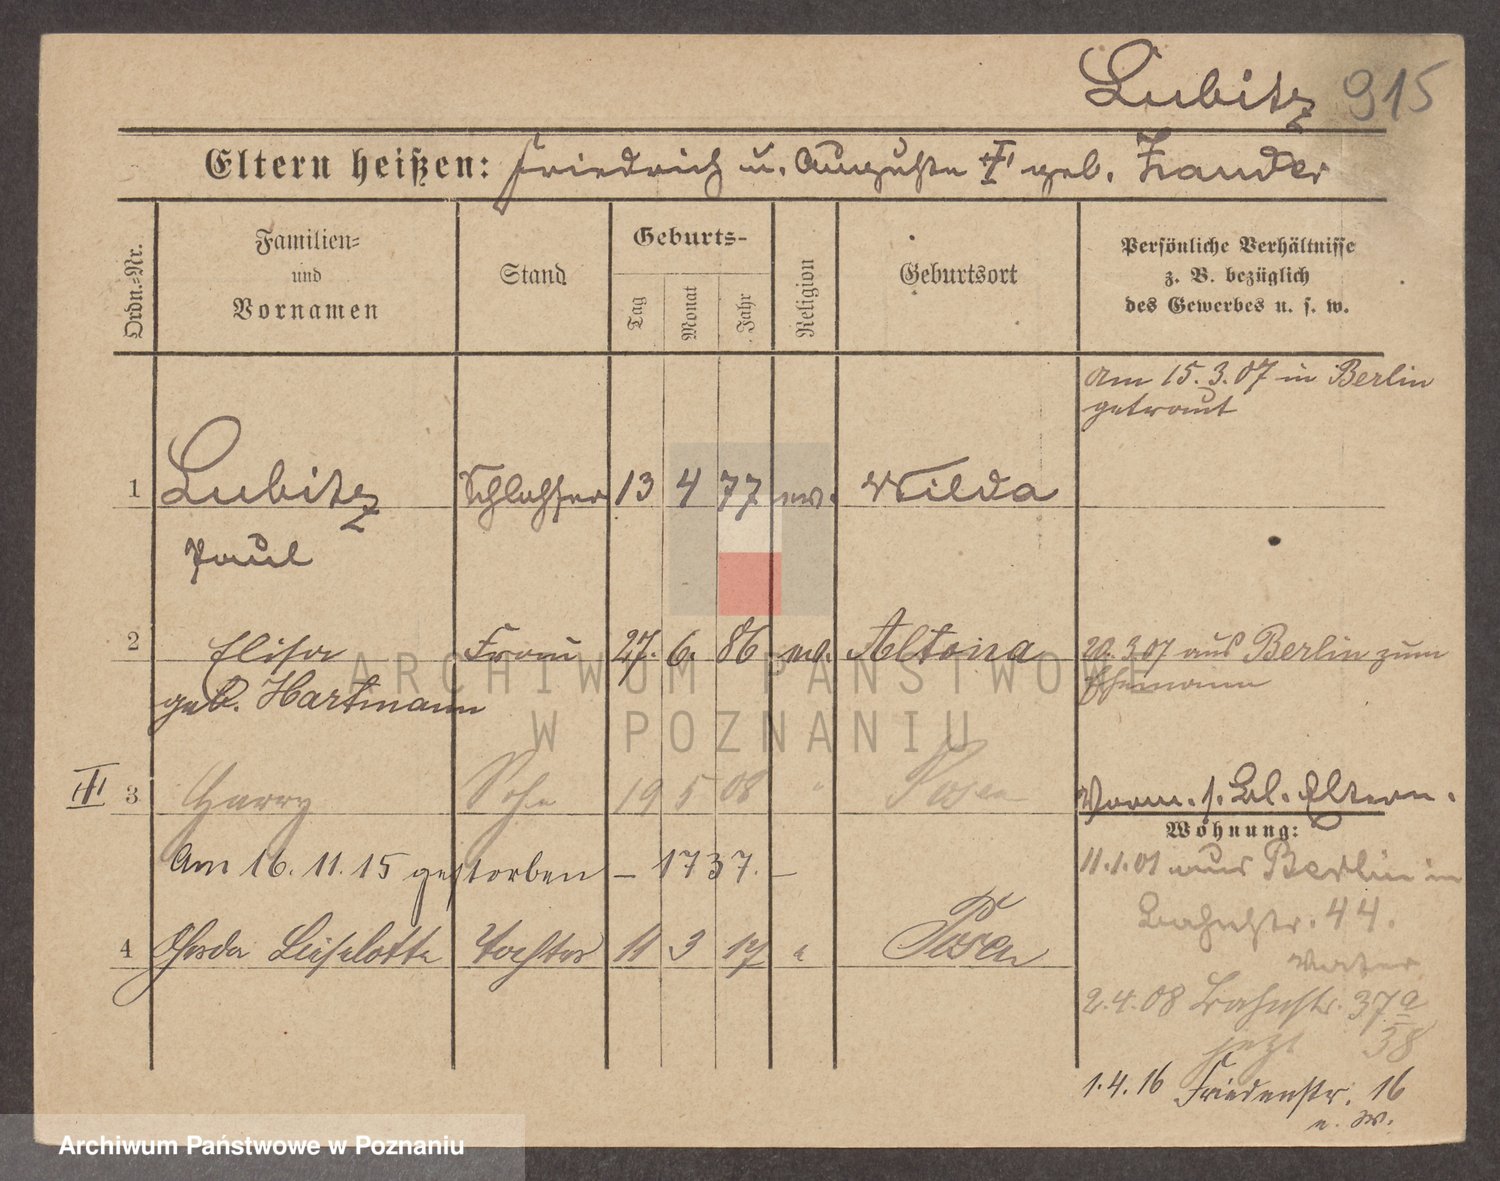 Lubitz 915
Eltern heißen: Friedrich u. Auguste geb. Zander
Ordn.-Nr.
Familien-
und
Vornamen
Stand
Geburts-
Tag
Monat
Jahr
Religion
Geburtsort
Persönliche Verhältnisse
z. B. bezüglich
des Gewerbes u. s. w.
Am 15.3.07 in Berlin
getraut
1 Lubitz Schlosser 13 4 77 ev. Wilda
Paul
2 Elisa Frau 27. 6. 86 ev. Altona 20.3.07 aus Berlin zum
geb. Hartmann Ehemann
3 Harry Sohn 19 5 08 " Posen Vorm. s. Bl. Eltern.
Wohnung:
Am 16.11.15 gestorben – 1737. –
11.1.01 aus Berlin in
Bahnstr. 44.
Vater
4 Gerda Liselotte Tochter 11 3 17 " Posen
2.4.08 Bahnstr. 37a
jetzt 38
1.4.16 Friedenstr. 16
ARCHIWUM PAŃSTWOWE
W POZNANIU
Archiwum Państwowe w Poznaniu